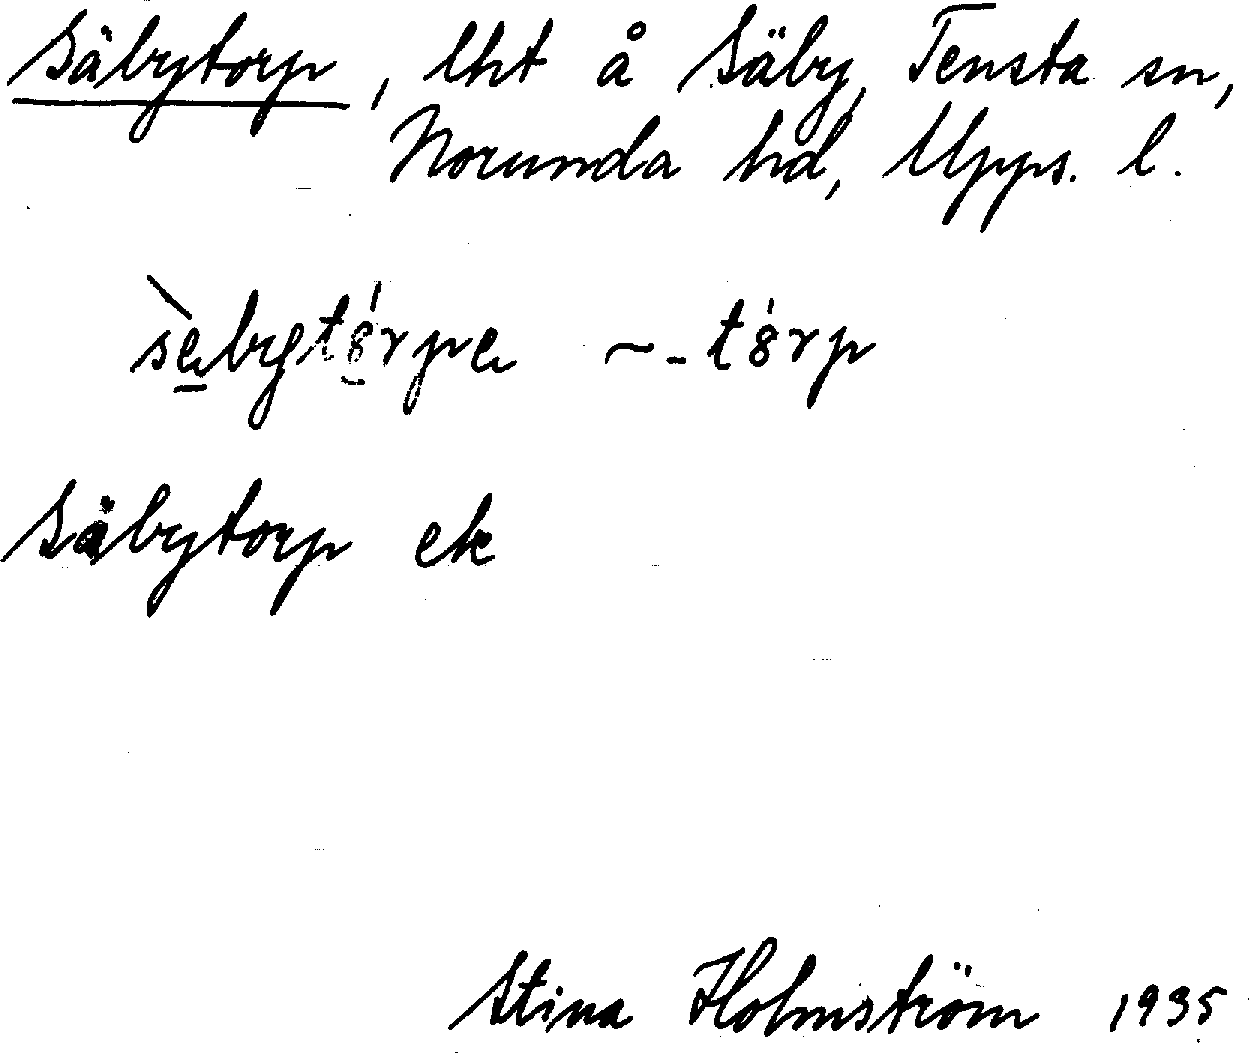 Säbytorp, lht å Säby, Tensta sn,
Norunda hd, Upps. l.
sèbytȣ́rpa ~ -tȣ́rp
Säbytorp ek
Stina Holmström 1935